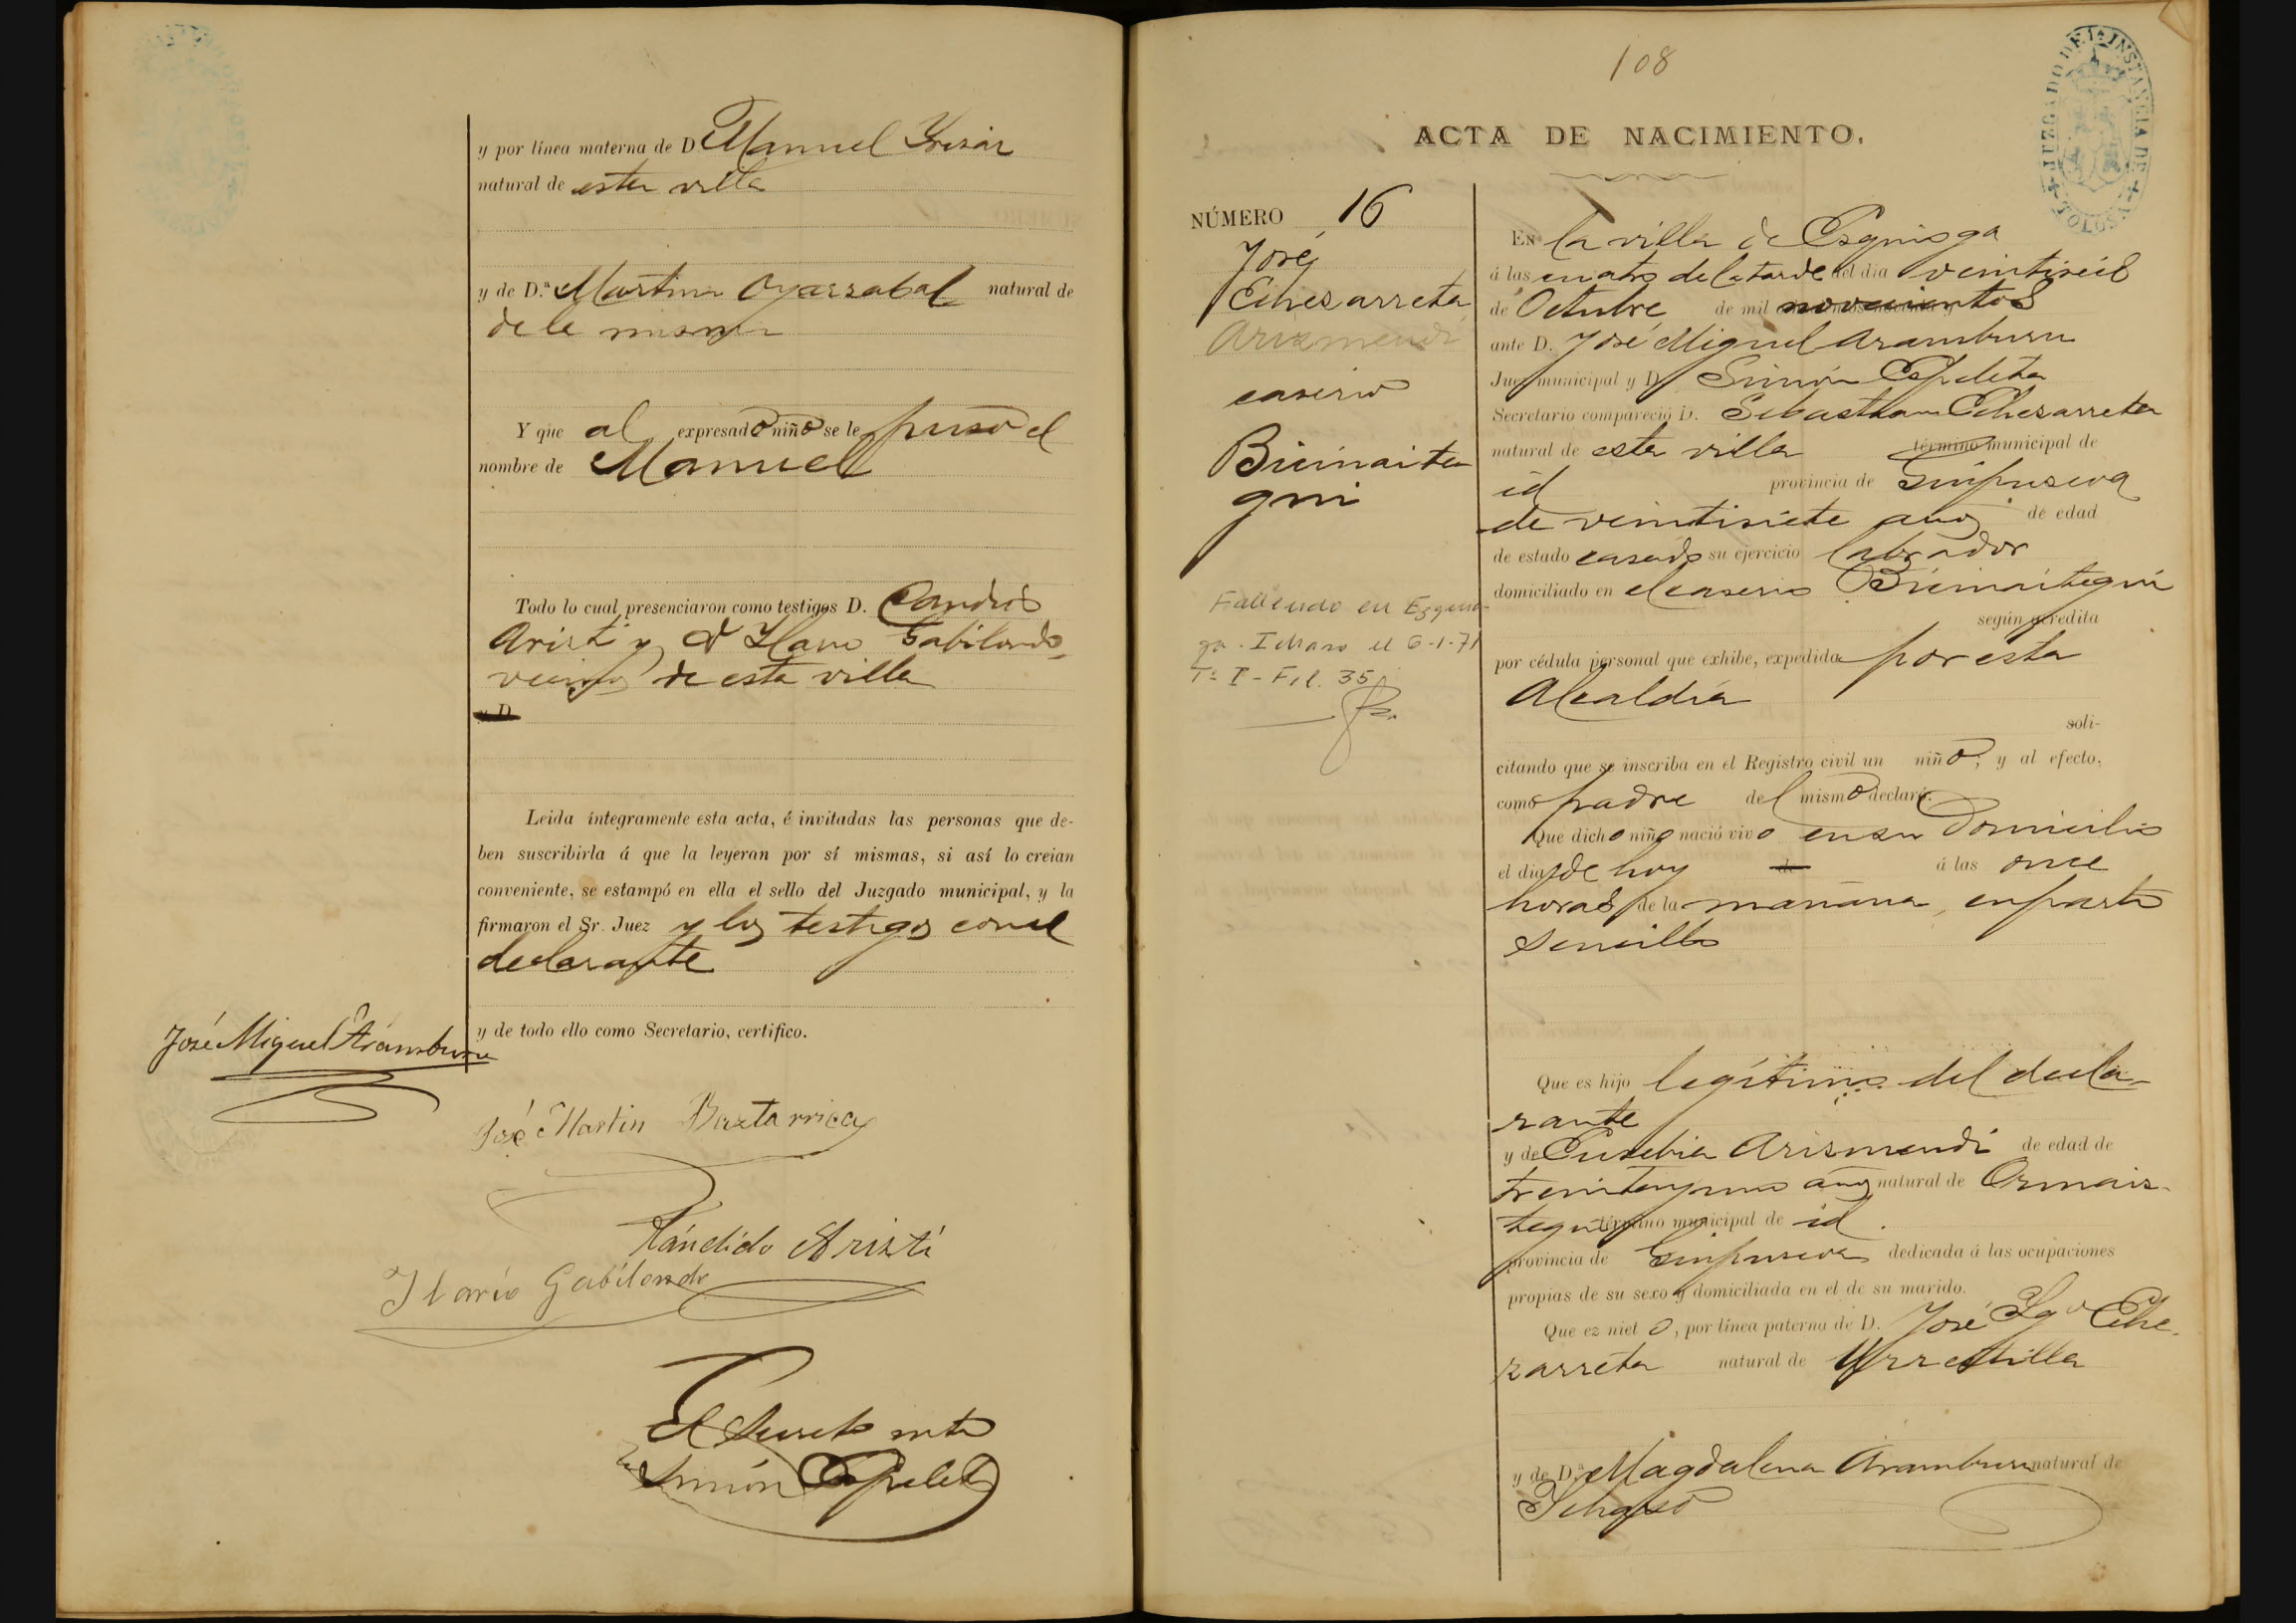 y por línea materna de D Manuel Yrizar
natural de esta villa
y de D.ª Martina Oyarzabal natural de
de la misma
Y que al expresado niño se le puso el
nombre de Manuel
Todo lo cual presenciaron como testigos D. Candido
Aristi y D Ylario Gabilondo
vecinos de esta villa
y D.
Leida íntegramente esta acta, é invitadas las personas que de-
ben suscribirla á que la leyeran por sí mismas, si así lo creian
conveniente, se estampó en ella el sello del Juzgado municipal, y la
firmaron el Sr. Juez y los testigos con el
declarante
y de todo ello como Secretario, certifico.
José Miguel Aramburu
José Martin Baztarrica
Kándido Aristi
Ilario Gabilondo
El Secreto
Simón Ezpeleta
108
ACTA DE NACIMIENTO.
JUZGADO DE 1ª INSTANCIA DE TOLOSA
NÚMERO 16
José
Echezarreta
Arizmendi
caserio
Bicinaite
gui
Fallecido en Ezquio-
ga-Ichaso el 6-1-71
Tº I - Fol. 35
En la villa de Ezquioga
á las cuatro de la tarde del dia veintiseis
de Octubre de mil novecientos
ante D. José Miguel Aramburu
Juez municipal y D. Simón Ezpeleta
Secretario compareció D. Sebastian Echezarreta
natural de esta villa término municipal de
id provincia de Guipuzcoa
de veintisiete años de edad
de estado casado su ejercicio labrador
domiciliado en el caserio Bicinaitegui
según acredita
por cédula personal que exhibe, expedida por esta
Alcaldía
soli-
citando que se inscriba en el Registro civil un niño; y al efecto,
como padre del mismo declaró:
Que dicho niño nació vivo en su domicilio
el dia de hoy de á las once
horas de la mañana, en parto
sencillo
Que es hijo legítimo del decla-
rante
y de Eusebia Arizmendi de edad de
treinta y un años natural de Ormaiz-
tegui término municipal de id.
provincia de Guipuzcoa dedicada á las ocupaciones
propias de su sexo y domiciliada en el de su marido.
Que es nieto, por línea paterna de D. José Ygº Eche-
zarreta natural de Urrestilla
y de D.ª Magdalena Aramburu natural de
Ichaso